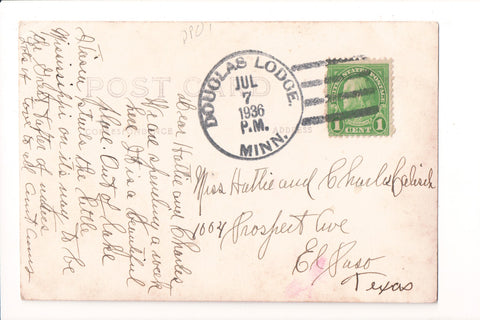 PP01
POST CARD
ADDRESS
DOUGLAS LODGE.
JUL
7
1936
P.M.
MINN.
UNITED STATES POSTAGE
1 CENT 1
Dear Hattie and Charles
We are spending a week
here. It is a beautiful
place. Out of Lake
Itasca starts the little
Mississippi on its way to be
the great father of waters
Lots of love to all Aunt
Miss Hattie and Charles
1004 Prospect Ave
El Paso
Texas